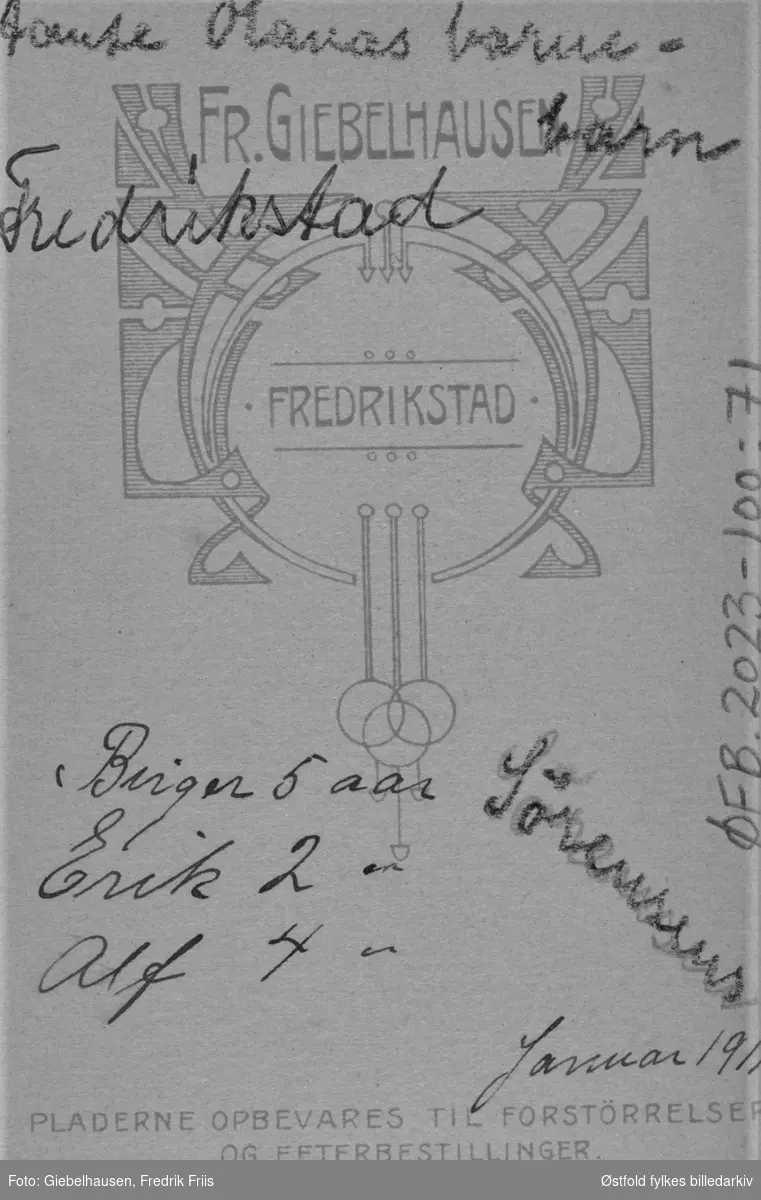 tante Olavas barne-
FR. GIEBELHAUSEN
barn
Fredrikstad
FREDRIKSTAD
ØFB. 2023-100-71
Birger 5 aar
Erik 2 "
Alf 4 "
Sörensens
Januar 191
PLADERNE OPBEVARES TIL FORSTÖRRELSER
OG EFTERBESTILLINGER.
Foto: Giebelhausen, Fredrik Friis
Østfold fylkes billedarkiv